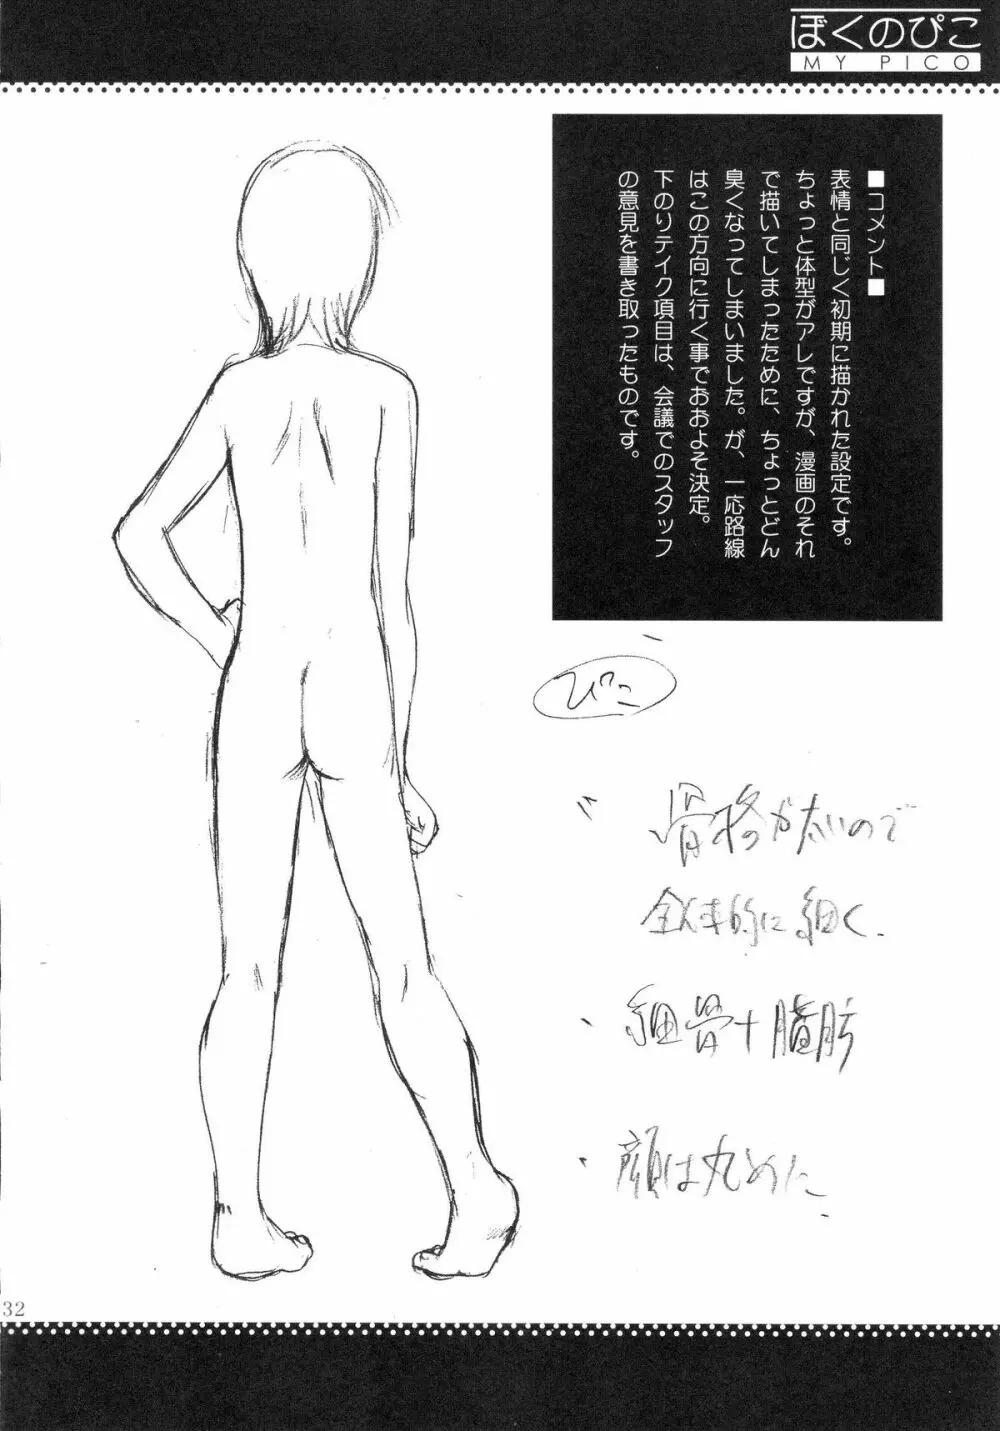 ぼくのぴこ
MY PICO
■コメント■
表情と同じく初期に描かれた設定です。
ちょっと体型がアレですが、漫画のそれ
で描いてしまったために、ちょっとどん
臭くなってしまいました。が、一応路線
はこの方向に行く事でおおよそ決定。
下のリテイク項目は、会議でのスタッフ
の意見を書き取ったものです。
ぴこ
骨格が太いので
全体的に細く
細骨+脂肪
顔は丸めに
32